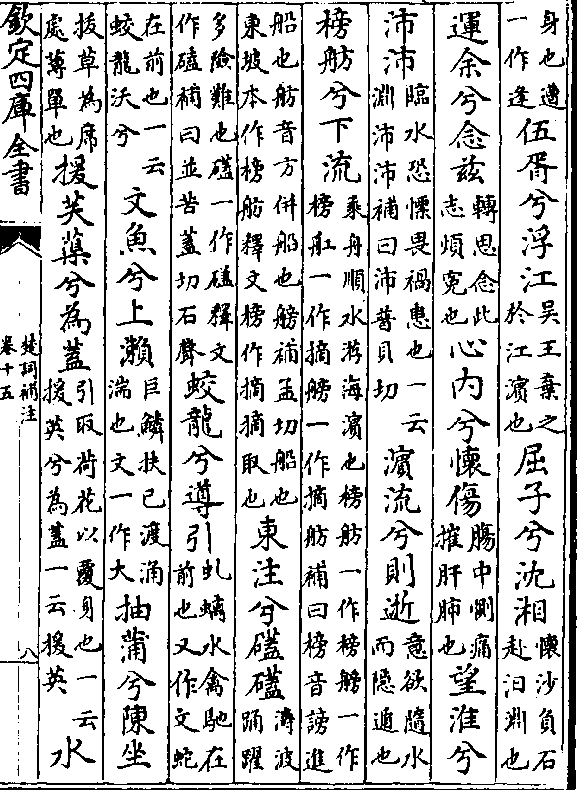 身也遭一作逢伍胥兮浮江吳王棄之於江濱也屈子兮沈湘懷沙負石赴汨淵也
運余兮念兹轉思念此志煩冤也心内兮懷傷腸中惻痛摧肝肺也望淮兮
沛沛臨水恐慄畏禍患也一云淵沛沛補曰沛普貝切濵流兮則逝意欲隨水而隱遁也
榜舫兮下流乘舟順水游海濱也榜舫一作榜艕一作榜舡一作摘艕一作摘舫補曰榜音謗進
船也舫音方併船也艕補孟切船也東坡本作榜舫釋文榜作摘摘取也東注兮礚礚濤波踊躍
多險難也礚一作磕釋文作磕補曰並苦蓋切石聲蛟龍兮導引虬螭水禽馳在前也又作文蛇
在前也一云蛟龍沃兮文魚兮上瀨巨鱗扶已渡涌湍也文一作大抽蒲兮陳坐
拔草為席處薄單也援芙蕖兮為蓋引取荷花以覆身也一云援英兮為蓋一云援英水
欽定四庫全書
楚詞補注
卷十五
八